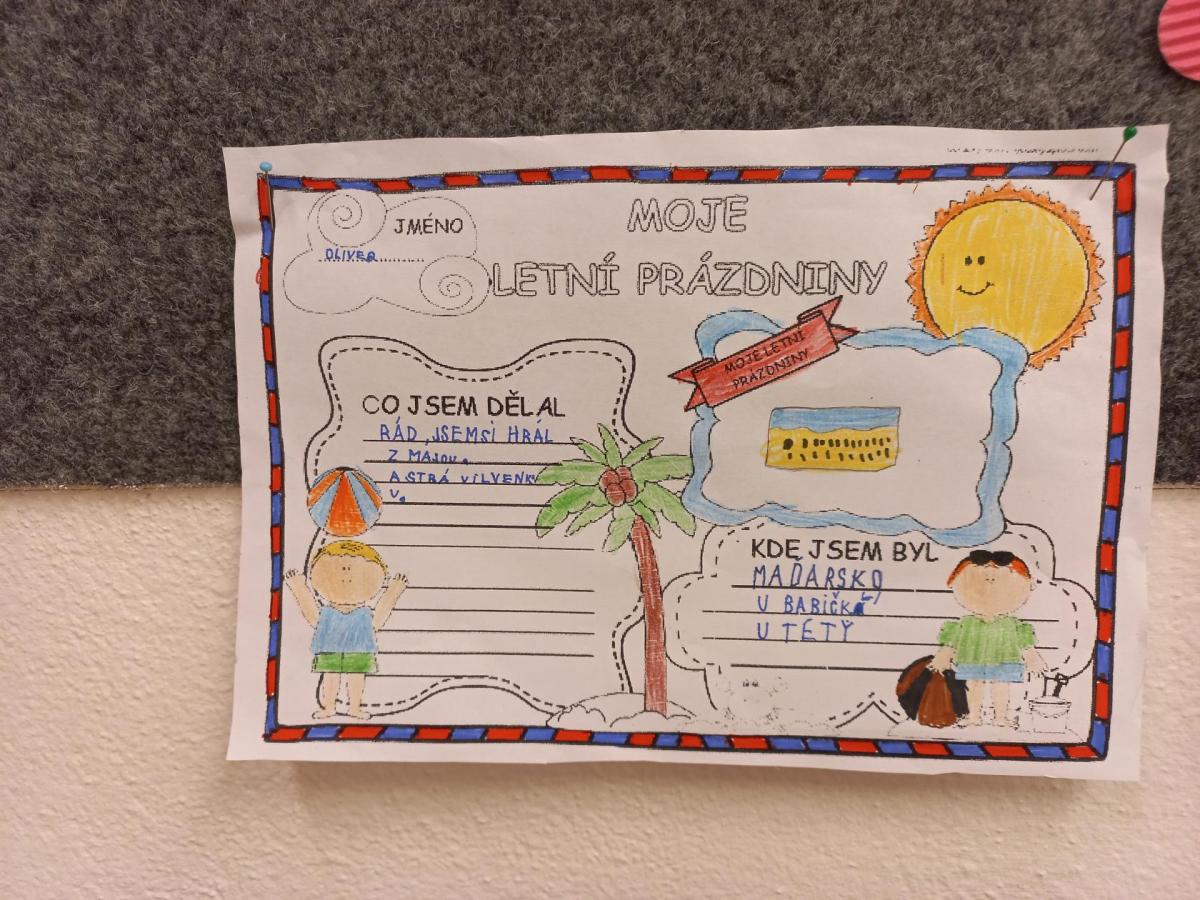 JMÉNO
OLIVER
MOJE
LETNÍ PRÁZDNINY
MOJE LETNÍ
PRÁZDNINY
CO JSEM DĚLAL
RÁD JSEMSI HRÁL
Z MAJOU.
A STRÁVILVENK
U.
KDE JSEM BYL
MAĎARSKO,
U BABIČKÁ,
U TETY